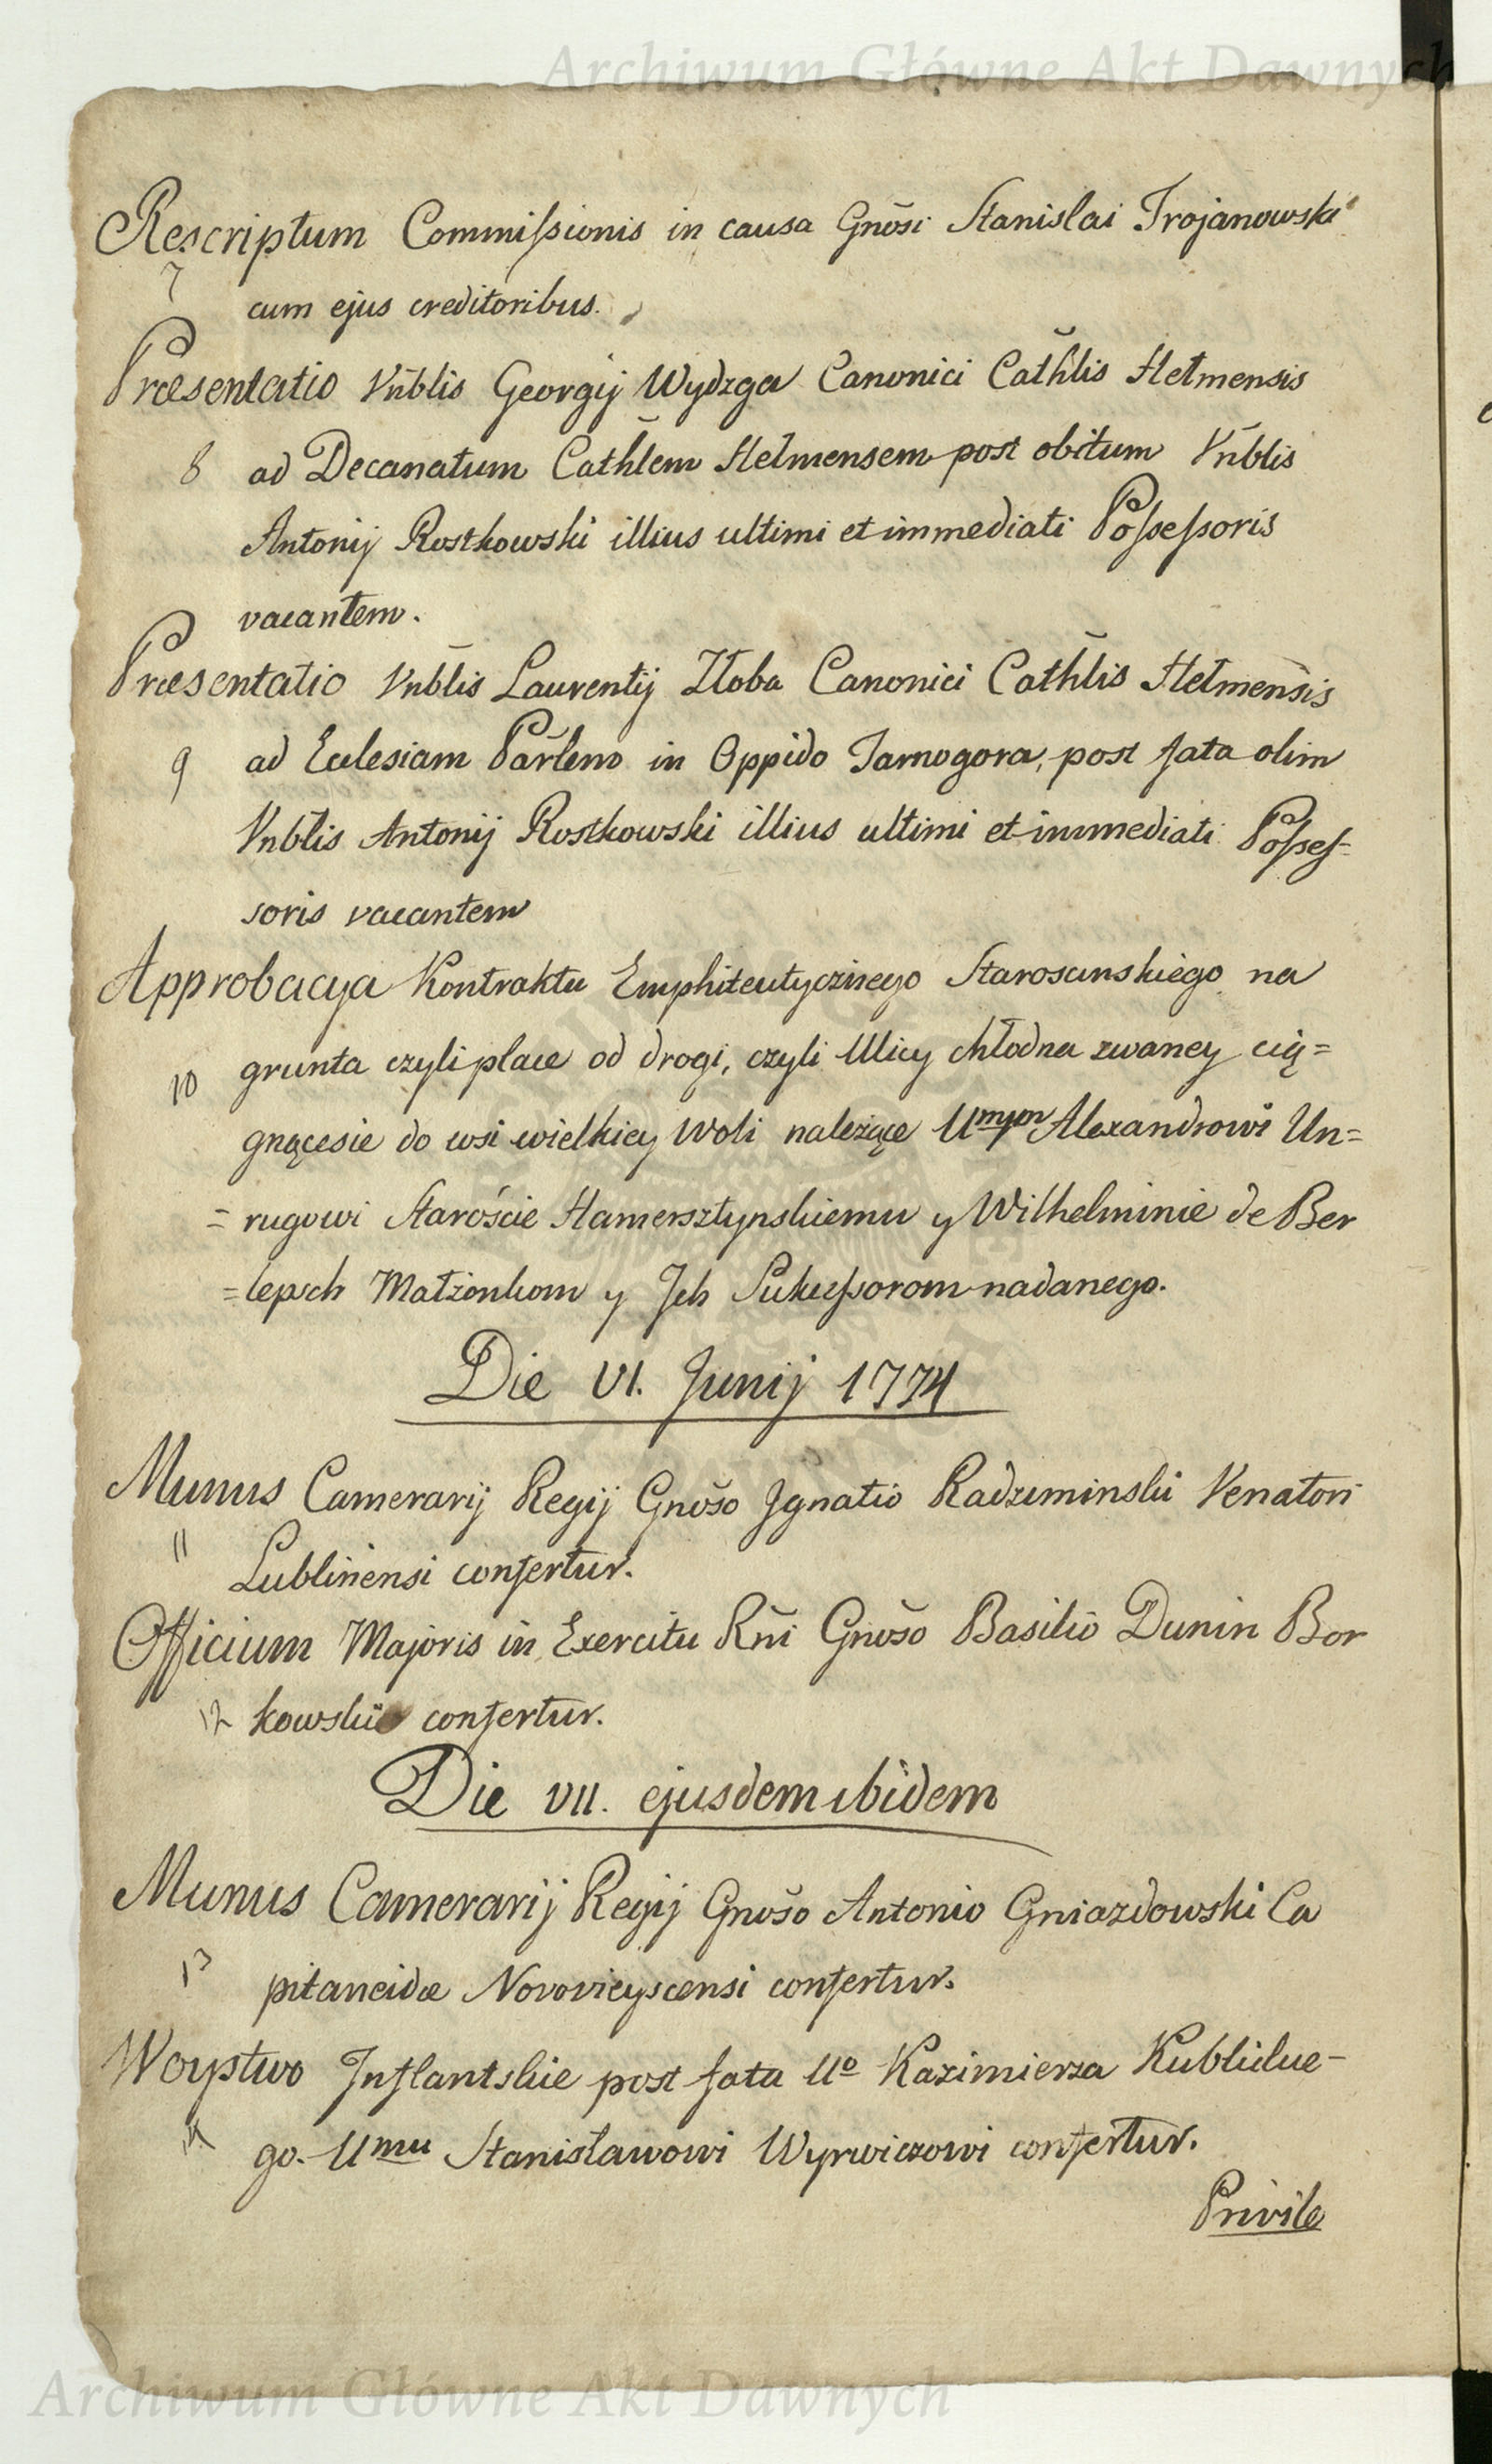 Archiwum Główne Akt Dawnych
Rescriptum Commiſsionis in causa Gnõsi Stanislai Trojanowski
7 cum ejus creditoribus.
Præsentatio Vnblis Georgij Wydzga Canonici Cathlis Helmensis
8 ad Decanatum Cathlem Helmensem post obitum Vnblis
Antonij Rostkowski illius ultimi et immediati Poſseſsoris
vacantem.
Præsentatio Vnblis Laurentij Złoba Canonici Cathlis Helmensis
9 ad Eclesiam Parlem in Oppido Tarnogora, post fata olim
Vnblis Antonij Rostkowski illius ultimi et immediati Poſseſ=
soris vacantem
Approbacya Kontraktu Emphiteutycznego Starosanskiego na
10 grunta czyli place od drogi, czyli Ulicy chłodna zwaney cią=
gnącesie do wsi wielkiey Woli należące Umym Alexandrowi Un=
=rugowi Staroście Hamersztynskiemu y Wilhelminie de Ber
=lepsch Małżonkom y Jch Sukceſsorom nadanego.
Die VI. Junij 1774
Munus Camerarij Regij Gnõso Jgnatio Radziminski Venatori
11 Lublinensi confertur.
Officium Majoris in Exercitu Rñi Gnõso Basilio Dunin Bor
12 kowski confertur.
Die VII. ejusdem ibidem
Munus Camerarij Regij Gnõso Antonio Gniazdowski Ca
13 pitaneidæ Novovieyscensi confertur.
Woystwo Jnflantskie post fata Uo Kazimierza Kublickie-
14 go. Umu Stanisławowi Wyrwiczowi confertur.
Privile
Archiwum Główne Akt Dawnych